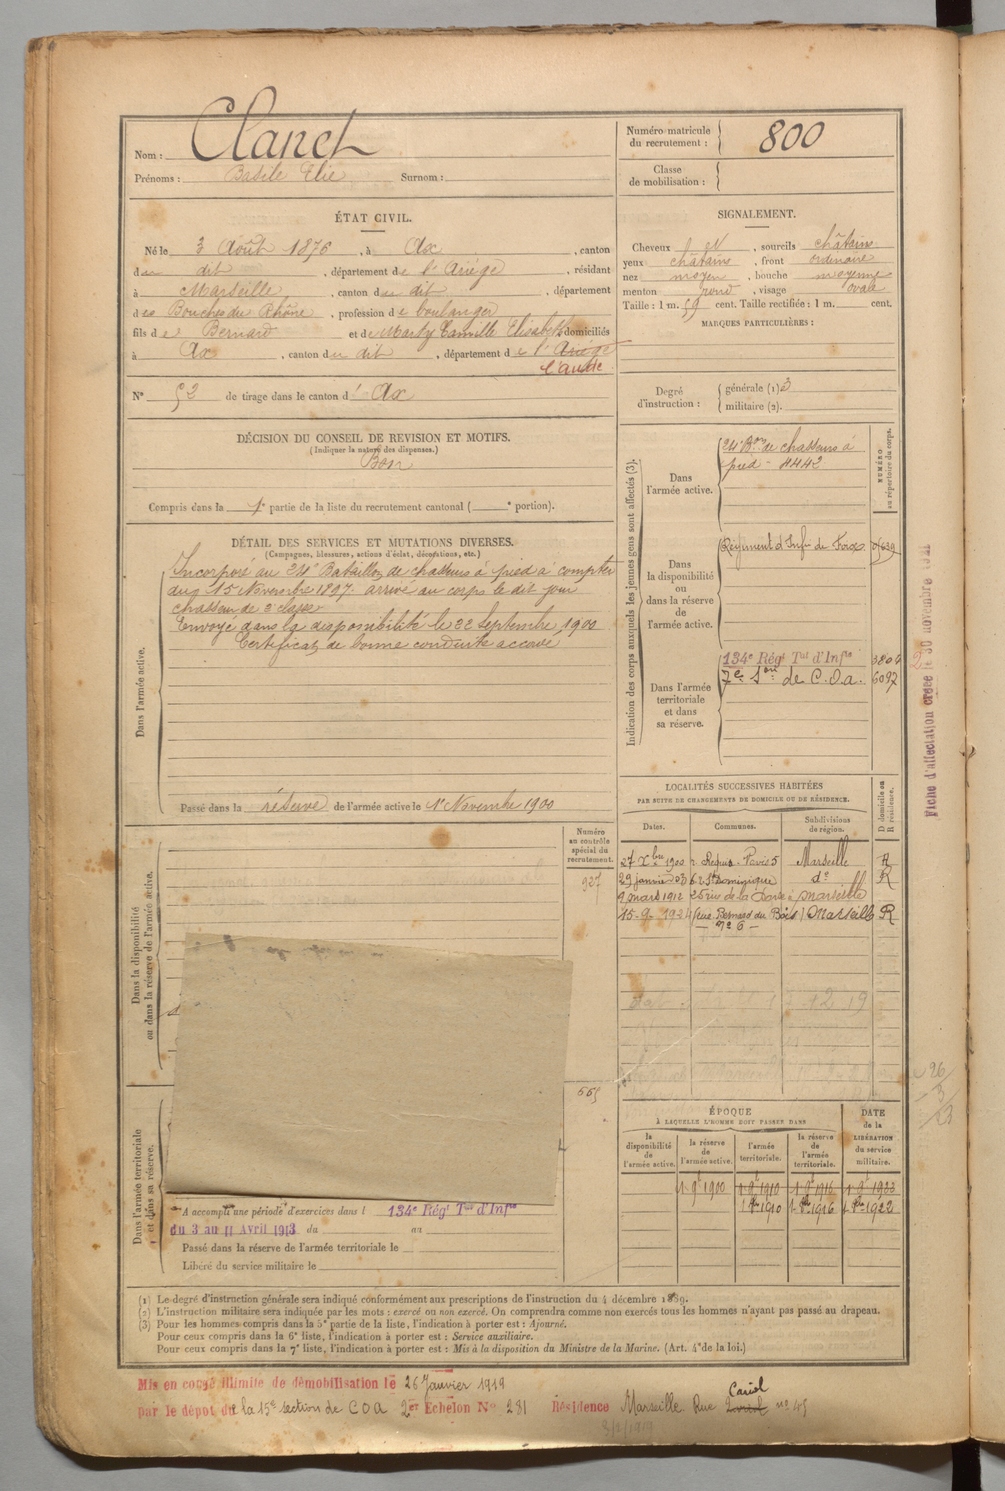 Nom : Clanet
Numéro matricule du recrutement : 800
Prénoms : Basile Elie Surnom :
Classe de mobilisation :
ÉTAT CIVIL.
Né le 3 Août 1876, à Ax, canton
du dit, département de l'Ariège, résidant
à Marseille, canton du dit, département
des Bouches du Rhône, profession de boulanger
fils de Bernard et de Marty Camille Elisabeth domiciliés
à Ax, canton du dit, département de l'Ariège
l'Aude
N° 52 de tirage dans le canton d' Ax
SIGNALEMENT.
Cheveux et, sourcils châtains
yeux châtains, front ordinaire
nez moyen, bouche moyenne
menton rond, visage ovale
Taille : 1 m. 59 cent. Taille rectifiée : 1 m. cent.
MARQUES PARTICULIÈRES :
Degré d'instruction : générale (1) 3
militaire (2).
DÉCISION DU CONSEIL DE REVISION ET MOTIFS.
(Indiquer la nature des dispenses.)
Bon
Compris dans la 1e partie de la liste du recrutement cantonal ( e portion).
DÉTAIL DES SERVICES ET MUTATIONS DIVERSES.
(Campagnes, blessures, actions d'éclat, décorations, etc.)
Dans l'armée active.
Incorporé au 24e Bataillon de chasseurs à pied à compter
du 15 Novembre 1897. arrivé au corps le dit jour
chasseur de 2e classe
Envoyé dans la disponibilité le 22 Septembre 1900
Certificat de bonne conduite accordé
Passé dans la réserve de l'armée active le 1er Novembre 1900
Indication des corps auxquels les jeunes gens sont affectés (3).
NUMÉRO au répertoire du corps.
Dans l'armée active.
24e Bon de chasseurs à
pied - 4442
Dans la disponibilité ou dans la réserve de l'armée active.
Régiment d'Infie de
Dans l'armée territoriale et dans sa réserve.
134e Régt Tal d'Infie 3804
7e Son de C.O.a. 6097
Fiche d'affectation créée le 30 novembre
LOCALITÉS SUCCESSIVES HABITÉES
PAR SUITE DE CHANGEMENTS DE DOMICILE OU DE RÉSIDENCE.
Dates. Communes. Subdivisions de région. D domicile ou R résidence.
27 Xbre 1900 r. Paris 5 Marseille R
29 janvier 03 6 r. St Dominique do R
9 mars 1912 25 rue de la Marseille
15-9-1934 (rue Bernard du Bois) Marseille R
— n° 6 —
Dans la disponibilité ou dans la réserve de l'armée active.
Numéro au contrôle spécial du recrutement.
927
665
26
3
23
Dans l'armée territoriale et dans sa réserve.
A accompli une période d'exercices dans l 134e Régt Tal d'Infie
du 3 au 11 Avril 1913 du au
Passé dans la réserve de l'armée territoriale le
Libéré du service militaire le
ÉPOQUE
À LAQUELLE L'HOMME DOIT PASSER DANS
DATE de la LIBÉRATION du service militaire.
la disponibilité de l'armée active. la réserve de l'armée active. l'armée territoriale. la réserve de l'armée territoriale.
1 9e 1900 1 9e 1910 1 9e 1916 1 9e 1923
1910 1916 1922
(1) Le degré d'instruction générale sera indiqué conformément aux prescriptions de l'instruction du 4 décembre 1889.
(2) L'instruction militaire sera indiquée par les mots : exercé ou non exercé. On comprendra comme non exercés tous les hommes n'ayant pas passé au drapeau.
(3) Pour les hommes compris dans la 5e partie de la liste, l'indication à porter est : Ajourné.
Pour ceux compris dans la 6e liste, l'indication à porter est : Service auxiliaire.
Pour ceux compris dans la 7e liste, l'indication à porter est : Mis à la disposition du Ministre de la Marine. (Art. 4 de la loi.)
Mis en congé illimité de démobilisation le 26 Janvier 1919
par le dépôt de la 15e section de COA 2er Échelon N° 281 Résidence Marseille Rue Cariol n° 45